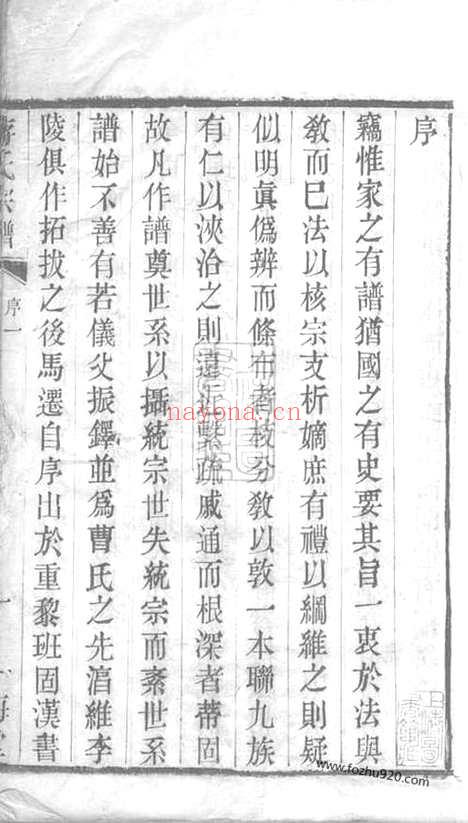 序
竊惟家之有譜猶國之有史要其旨一衷於法與
敎而巳法以核宗支析嫡庶有禮以綱維之則疑
似明眞僞辨而條布者枝分敎以敦一本聯九族
有仁以浹洽之則遠近繫疏戚通而根深者蒂固
故凡作譜奠世系以攝統宗世失統宗而紊世系
譜始不善有若儀父振鐸並爲曹氏之先湻維李
陵俱作拓拔之後馬遷自序出於重黎班固漢書
氏宗譜
序一
www.nayona.cn
www.fozhu920.com